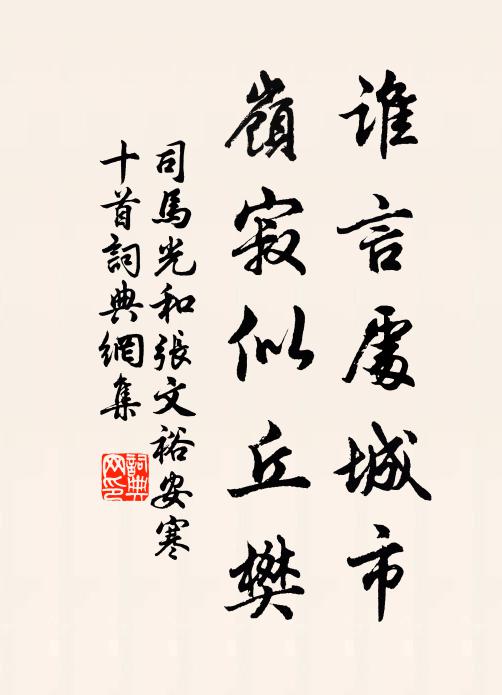 谁言處城市
嶺寂似丘樊
司馬光和張文裕安寒
十首詞典網集
詞典
网印